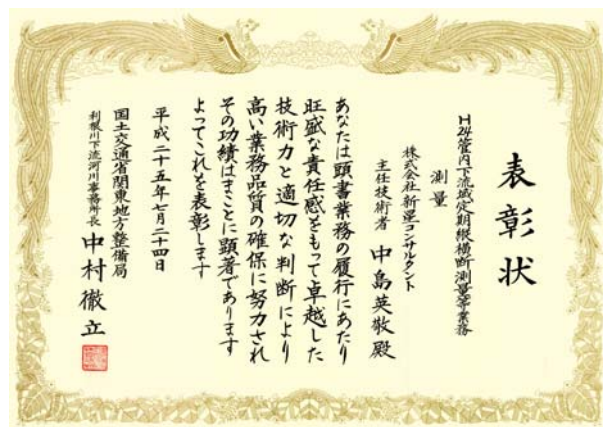 表彰状
H24管内下流域定期縦横断測量等業務
測量
株式会社新星コンサルタント
主任技術者 中島英敬殿
あなたは頭書業務の履行にあたり
旺盛な責任感をもって卓越した
技術力と適切な判断により
高い業務品質の確保に努力され
その功績はまことに顕著であります
よってこれを表彰します
平成二十五年七月二十四日
国土交通省関東地方整備局
利根川下流河川事務所長 中村徹立